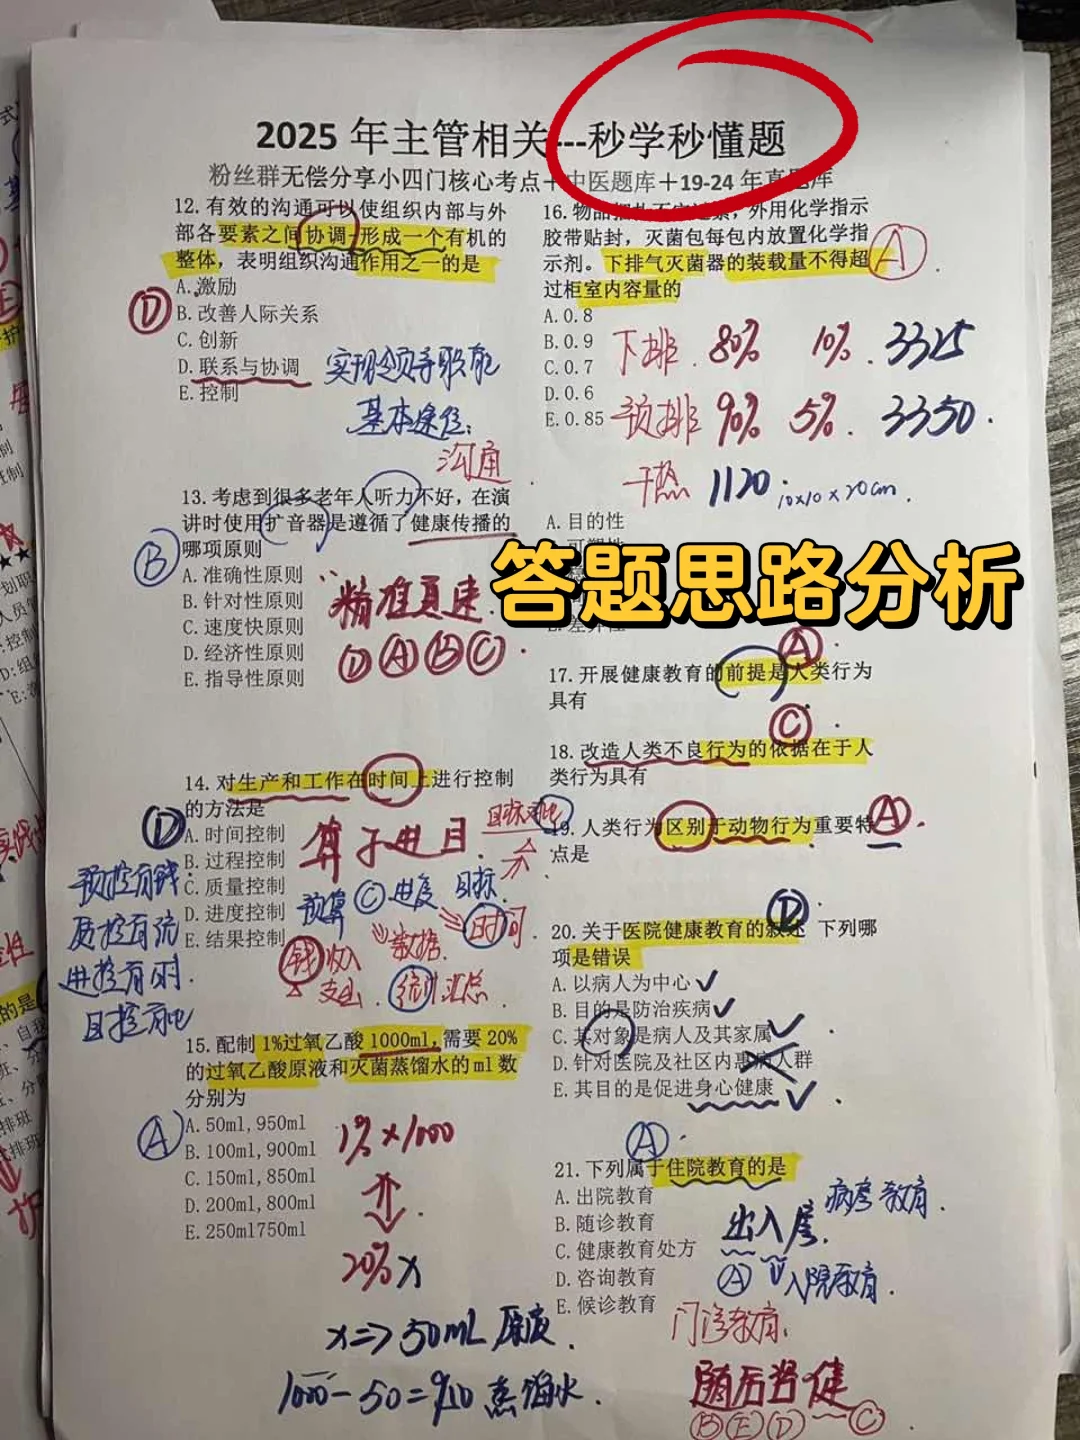 2025 年主管相关---秒学秒懂题
粉丝群无偿分享小四门核心考点＋中医题库＋19-24 年真题库
12. 有效的沟通可以使组织内部与外
部各要素之间协调-形成一个有机的
整体，表明组织沟通作用之一的是
A. 激励
D
B. 改善人际关系
C. 创新
D. 联系与协调
E. 控制
实现领导职能
基本途径：
沟通
13. 考虑到很多老年人听力不好，在演
讲时使用扩音器是遵循了健康传播的
哪项原则
B
A. 准确性原则
B. 针对性原则
C. 速度快原则
D. 经济性原则
E. 指导性原则
精准真速
D A B C
14. 对生产和工作在时间上进行控制
的方法是
D
A. 时间控制
B. 过程控制
C. 质量控制
D. 进度控制
E. 结果控制
算子进目
目标对比
预算 C 进度 目标
数据 时间
钱 收入
支出
统计汇总
预控有钱
质控有流
进控有时
目控有比
15. 配制 1%过氧乙酸 1000ml,需要 20%
的过氧乙酸原液和灭菌蒸馏水的 ml 数
分别为
A
A. 50ml,950ml
B. 100ml,900ml
C. 150ml,850ml
D. 200ml,800ml
E. 250ml750ml
1%×1000
20% x
x=>50mL 原液.
1000-50=950 蒸馏水.
16. 物品捆扎不宜过紧，外用化学指示
胶带贴封，灭菌包每包内放置化学指
示剂。下排气灭菌器的装载量不得超
过柜室内容量的
A
A. 0.8
B. 0.9
C. 0.7
D. 0.6
E. 0.85
下排. 80% 10%. 3325
预排 90% 5%. 3350.
干热 1120. 10×10×20cm.
A. 目的性
答题思路分析
E. 差异性
A
17. 开展健康教育的前提是人类行为
具有
C
18. 改造人类不良行为的依据在于人
类行为具有
19. 人类行为区别于动物行为重要特
点是
A
D
20. 关于医院健康教育的叙述 下列哪
项是错误
A. 以病人为中心
B. 目的是防治疾病
C. 其对象是病人及其家属
D. 针对医院及社区内患病人群
E. 其目的是促进身心健康
A
21. 下列属于住院教育的是
A. 出院教育
B. 随诊教育
C. 健康教育处方
D. 咨询教育
E. 候诊教育
病房教育.
出入房.
A 入院教育.
门诊教育.
随后咨健
B E D C